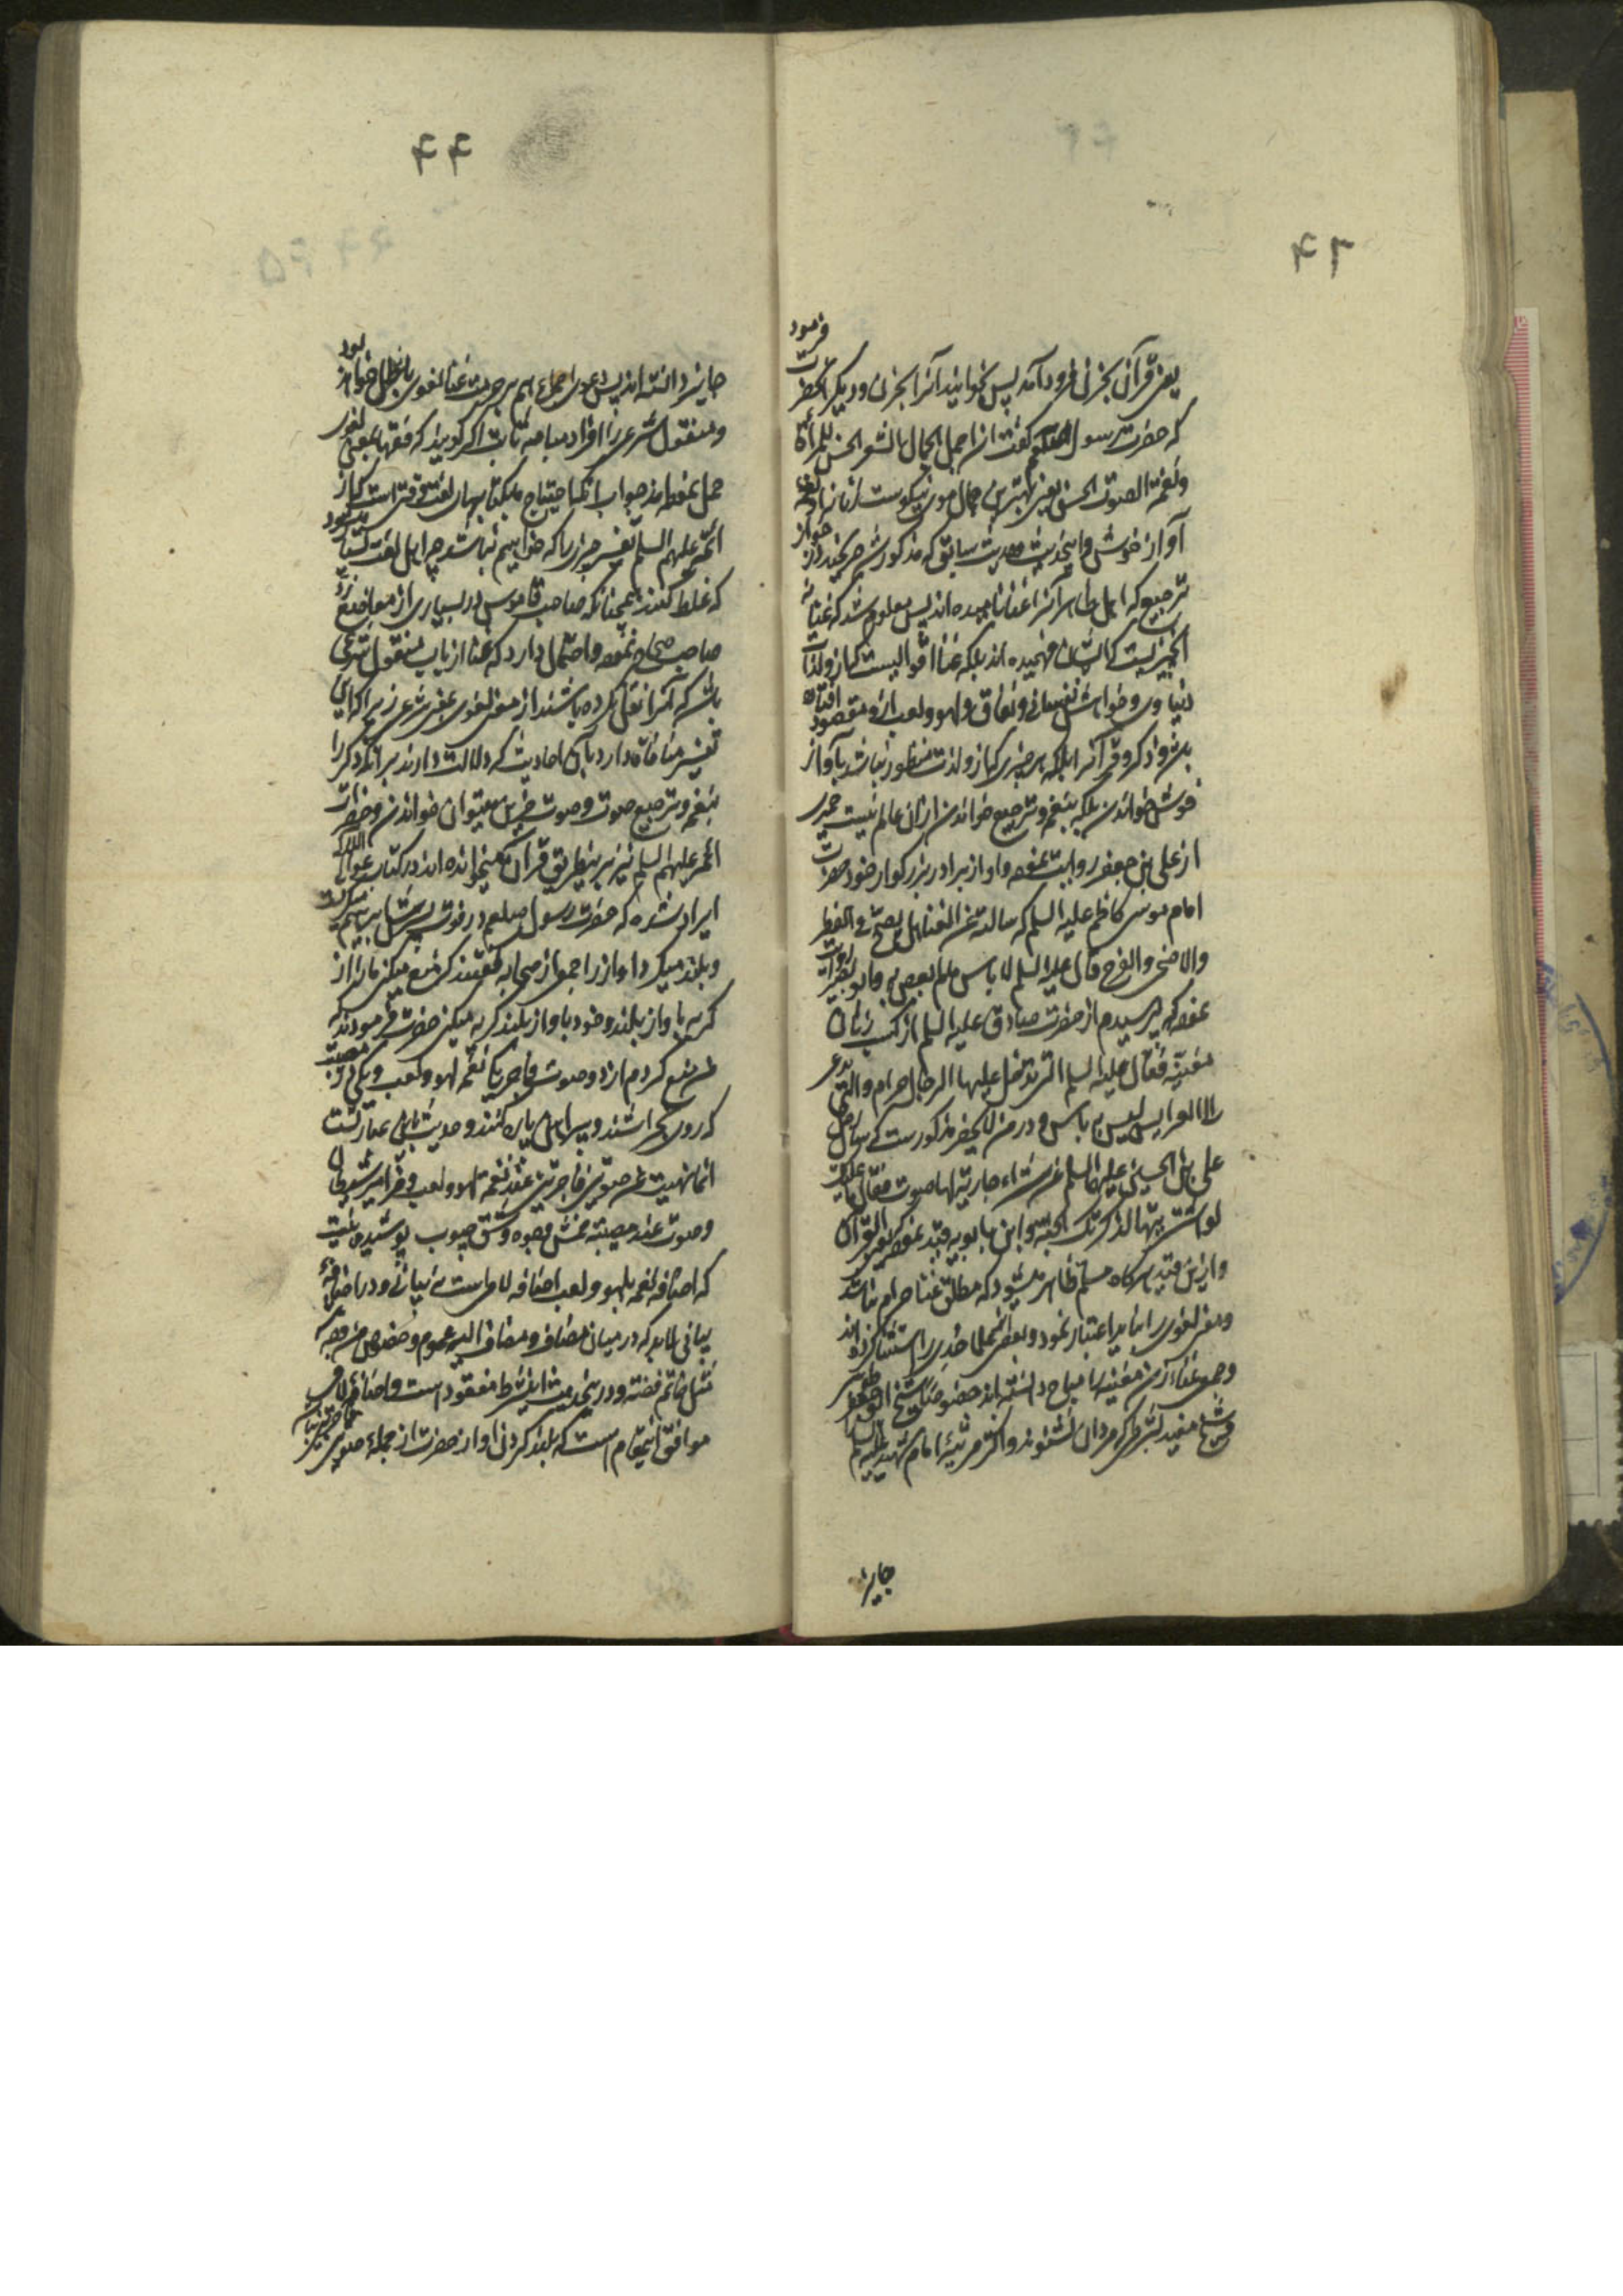 ۴۳
یعنی قرآن بحزن فرود آمد پس بخوانید آنرا بحزن و دیگر آنحضرت فرمود
که حضرت رسول گفت ان اجمل الجمال الشعر الحسن للمرأة
و نغمة الصوت الحسن یعنی بهترین جمال موی نیکوست و نغمه
آواز خوش و اینحدیث و حدیث سابق که مذکور شد جواز
ترجیع که اهل آنرا غنا نامیده اند پس معلوم شد که غنا نه
آنچیزیست که ایشان فهمیده اند بلکه غنا آوازیست که از و لذات
دنیاوی و خواهش نفسانی و نفاق و لهو و لعب از و مقصود
و ذکر و قرآنرا بلکه هر چیزی که از و لذت منظور نباشد بآواز
خوش خواندن بلکه بنغمه و ترجیع خواندن از آن عالم نیست حمیری
از علی بن جعفر روایت نموده و او از برادر بزرگوار خود حضرت
امام موسی کاظم علیه السلم که سالته عن الغناء هل یصلح فی الفطر
والاضحی والفرح قال علیه السلم لا باس ما لم یعص به و ابو بصیر روایت
نموده که پرسیدم از حضرت صادق علیه السلم از کسب زنان
مغنیه فقال علیه السلم التی یدخل علیها الرجال حرام والتی تدعی
الی العرایس لیس به باس و در من لا یحضر مذکورست که سال رجل
علی بن الحسین علیهما السلم عن شراء جاریة لها صوت فقال ما علیک
لو اشتریتها فذکرتک الجنة و ابن بابویه قید نموده بقرائة القرآن
و ازین قید هر گاه مسلم ظاهر میشود که مطلق غنا حرام نباشد
و معنی لغوی را نباید اعتبار نمود و بعضی از علما حُدی را استثنا کرده اند
و جمعی غناء زن مغنیه را مباح دانسته اند خصوصا شیخ ابو جعفر طوسی
و شیخ مفید بشرطی که مردان نشنوند و اکثر مرثیهٔ امام شهید علیه السلم
جایز
۴۴
جایز دانسته اند پس دعوی اجماع هم بر حرمت غنا لغوی باطل خواهد بود
و منقول شرعی را افراد مباحه ثابت اگر گویند که فقها بمعنی لغوی
حمل نموده اند جواب آنکه احتیاج بیان لغت وقتی است که از
ائمه علیهم السلم تفسیر چیزی را که خواهیم نباشد چه اهل لغت بسیار بود
که غلط کنند همچنانکه صاحب قاموس در بسیاری از مواضع رد
صاحب صحاح نموده و احتمال دارد که غنا از باب منقول شرعی
باشد که آنرا نقل کرده باشند از معنی لغوی بمعنی شرعی زیرا که این
تفسیر منافاة دارد بآن احادیث که دلالت دارند بر آنکه ذکر را
بنغمه و ترجیع صوت و صوت حزین میتوان خواندن و حضرات
ائمه علیهم السلم نیز بر اینطریق قرآن میخوانده اند در کتاب عوالی اللآلی
ایراد شده که حضرت رسول صلعم در فوت پسرش ابراهیم میگریست
و بلند میکرد آواز را جمعی از صحابه گفتند که منع میکنی ما را از
گریه بآواز بلند و خود بآواز بلند گریه میکنی حضرت فرمودند که
من منع کردم از دو صوت فاجر یکی نغمه لهو و لعب و یکی در مصیبت
که روی بخراشند و پیراهن پاره کنند و حدیث باین عبارتست
انما نهیت عن صوتین فاجرین عند نغمة لهو و لعب و مزامیر شیطان
و صوت عند مصیبة خمش وجوه و شق جیوب پوشیده نیست
که اضافه نغمه بلهو و لعب اضافه لامی است نه بیانی و در اضافهٔ
بیانی لابد که در میان مضاف و مضاف الیه عموم و خصوص من وجه
مثل خاتم فضة و در اینحدیث اینشرط مفقود است و اضافهٔ لامی
موافق اینمقام است که بلند کردن آواز حضرت از جملهٔ صوتین فاجرین نباشد